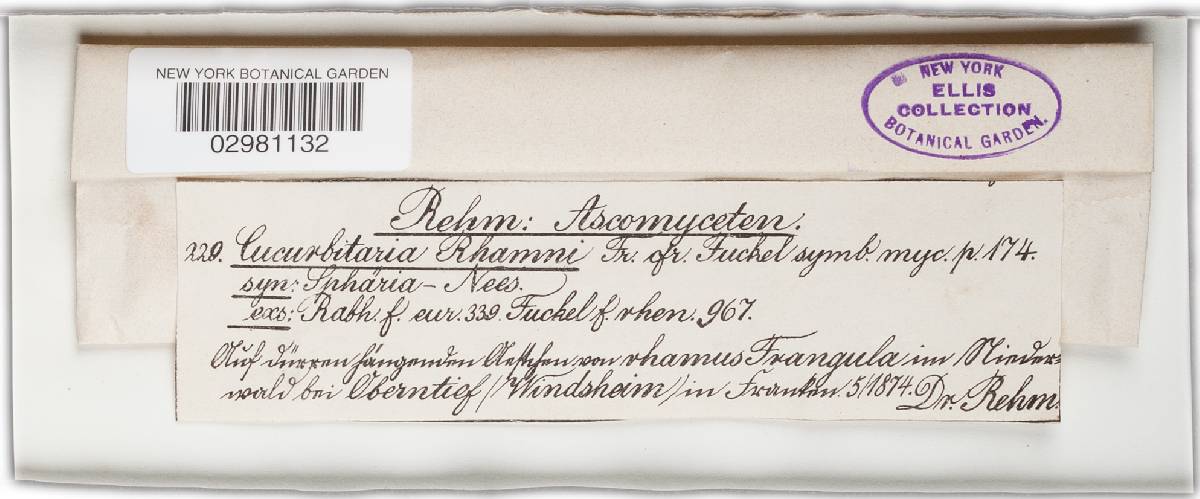 NEW YORK BOTANICAL GARDEN
02981132
NEW YORK
ELLIS
COLLECTION
BOTANICAL GARDEN.
Rehm: Ascomyceten.
229. Cucurbitaria Rhamni Fr. cfr. Fuckel symb. myc. p. 174.
syn: Sphäria – Nees.
exs: Rabh. f. eur. 339. Fuckel f. rhen. 967.
Auf dürren hängenden Aestchen von rhamus Frangula im Nieder-
wald bei Oberntief (Windsheim) in Franken. 5/1874. Dr. Rehm.